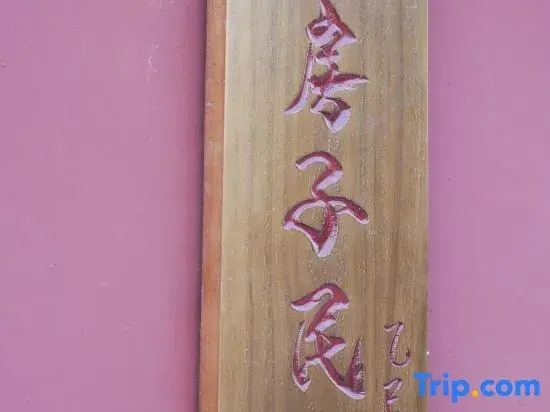 房子民
乙
Trip.com